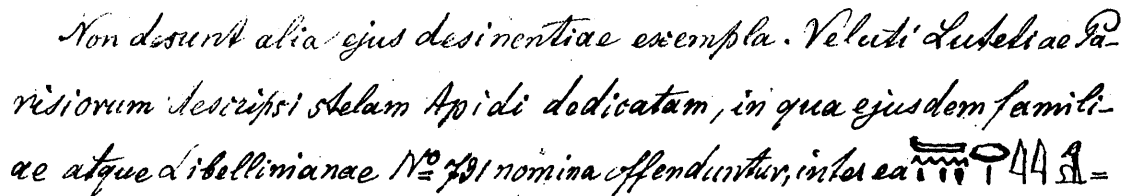 Non desunt alia ejus desinentiae exempla. Veluti Lutetiae Pa-
risiorum descripsi stelam Apidi dedicatam, in qua ejusdem famili-
ae atque Libellinianae Nº 791 nomina offenduntur, inter ea